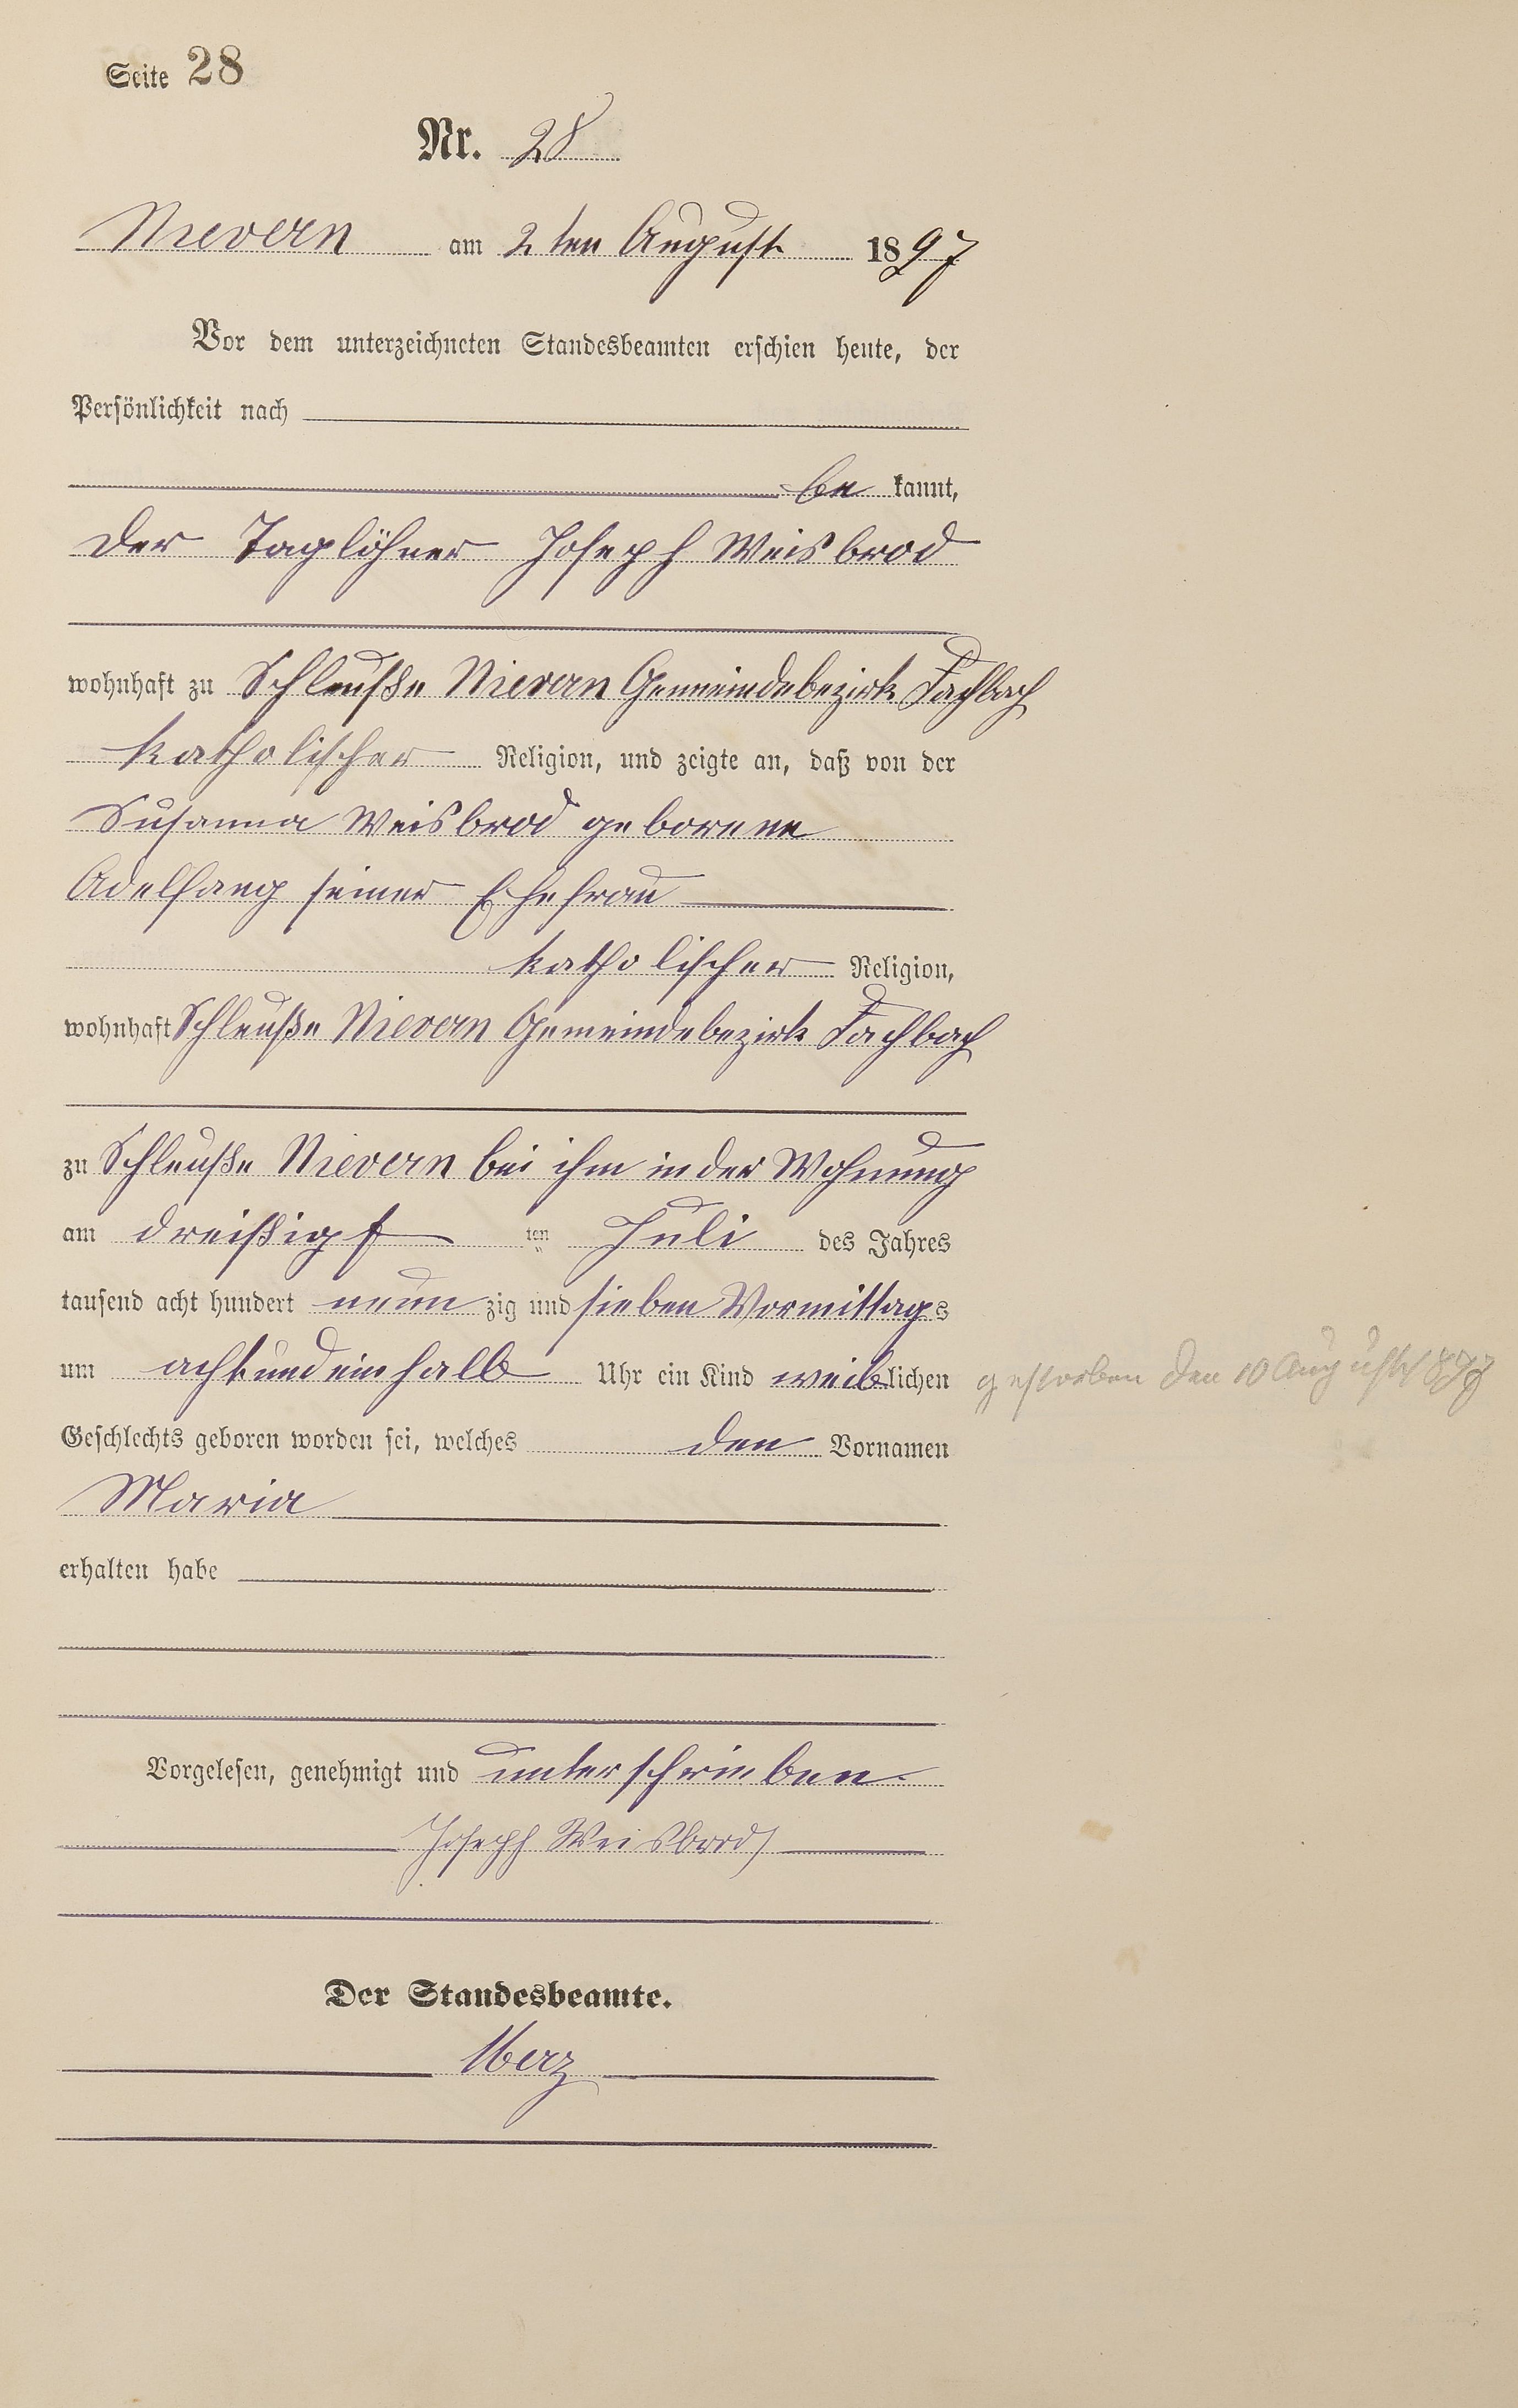 Seite 28
Nr. 28
Nievern am 2ten August 1897
Vor dem unterzeichneten Standesbeamten erschien heute, der
Persönlichkeit nach
be kannt,
der Taglöhner Joseph Weisbrod
wohnhaft zu Schleuße Nievern Gemeindebezirk Fachbach
katholischer Religion, und zeigte an, daß von der
Susanna Weisbrod geborene
Adelfang seiner Ehefrau
katholischer Religion,
wohnhaft Schleuße Nievern Gemeindebezirk Fachbach
zu Schleuße Nievern bei ihm in der Wohnung
am dreißigst ten Juli des Jahres
tausend acht hundert neun zig und sieben Vormittags
um achtundeinhalb Uhr ein Kind weiblichen
gestorben den 10 August 1897
Geschlechts geboren worden sei, welches den Vornamen
Maria
erhalten habe
Vorgelesen, genehmigt und unterschrieben
Joseph Weisbrod
Der Standesbeamte.
Merz